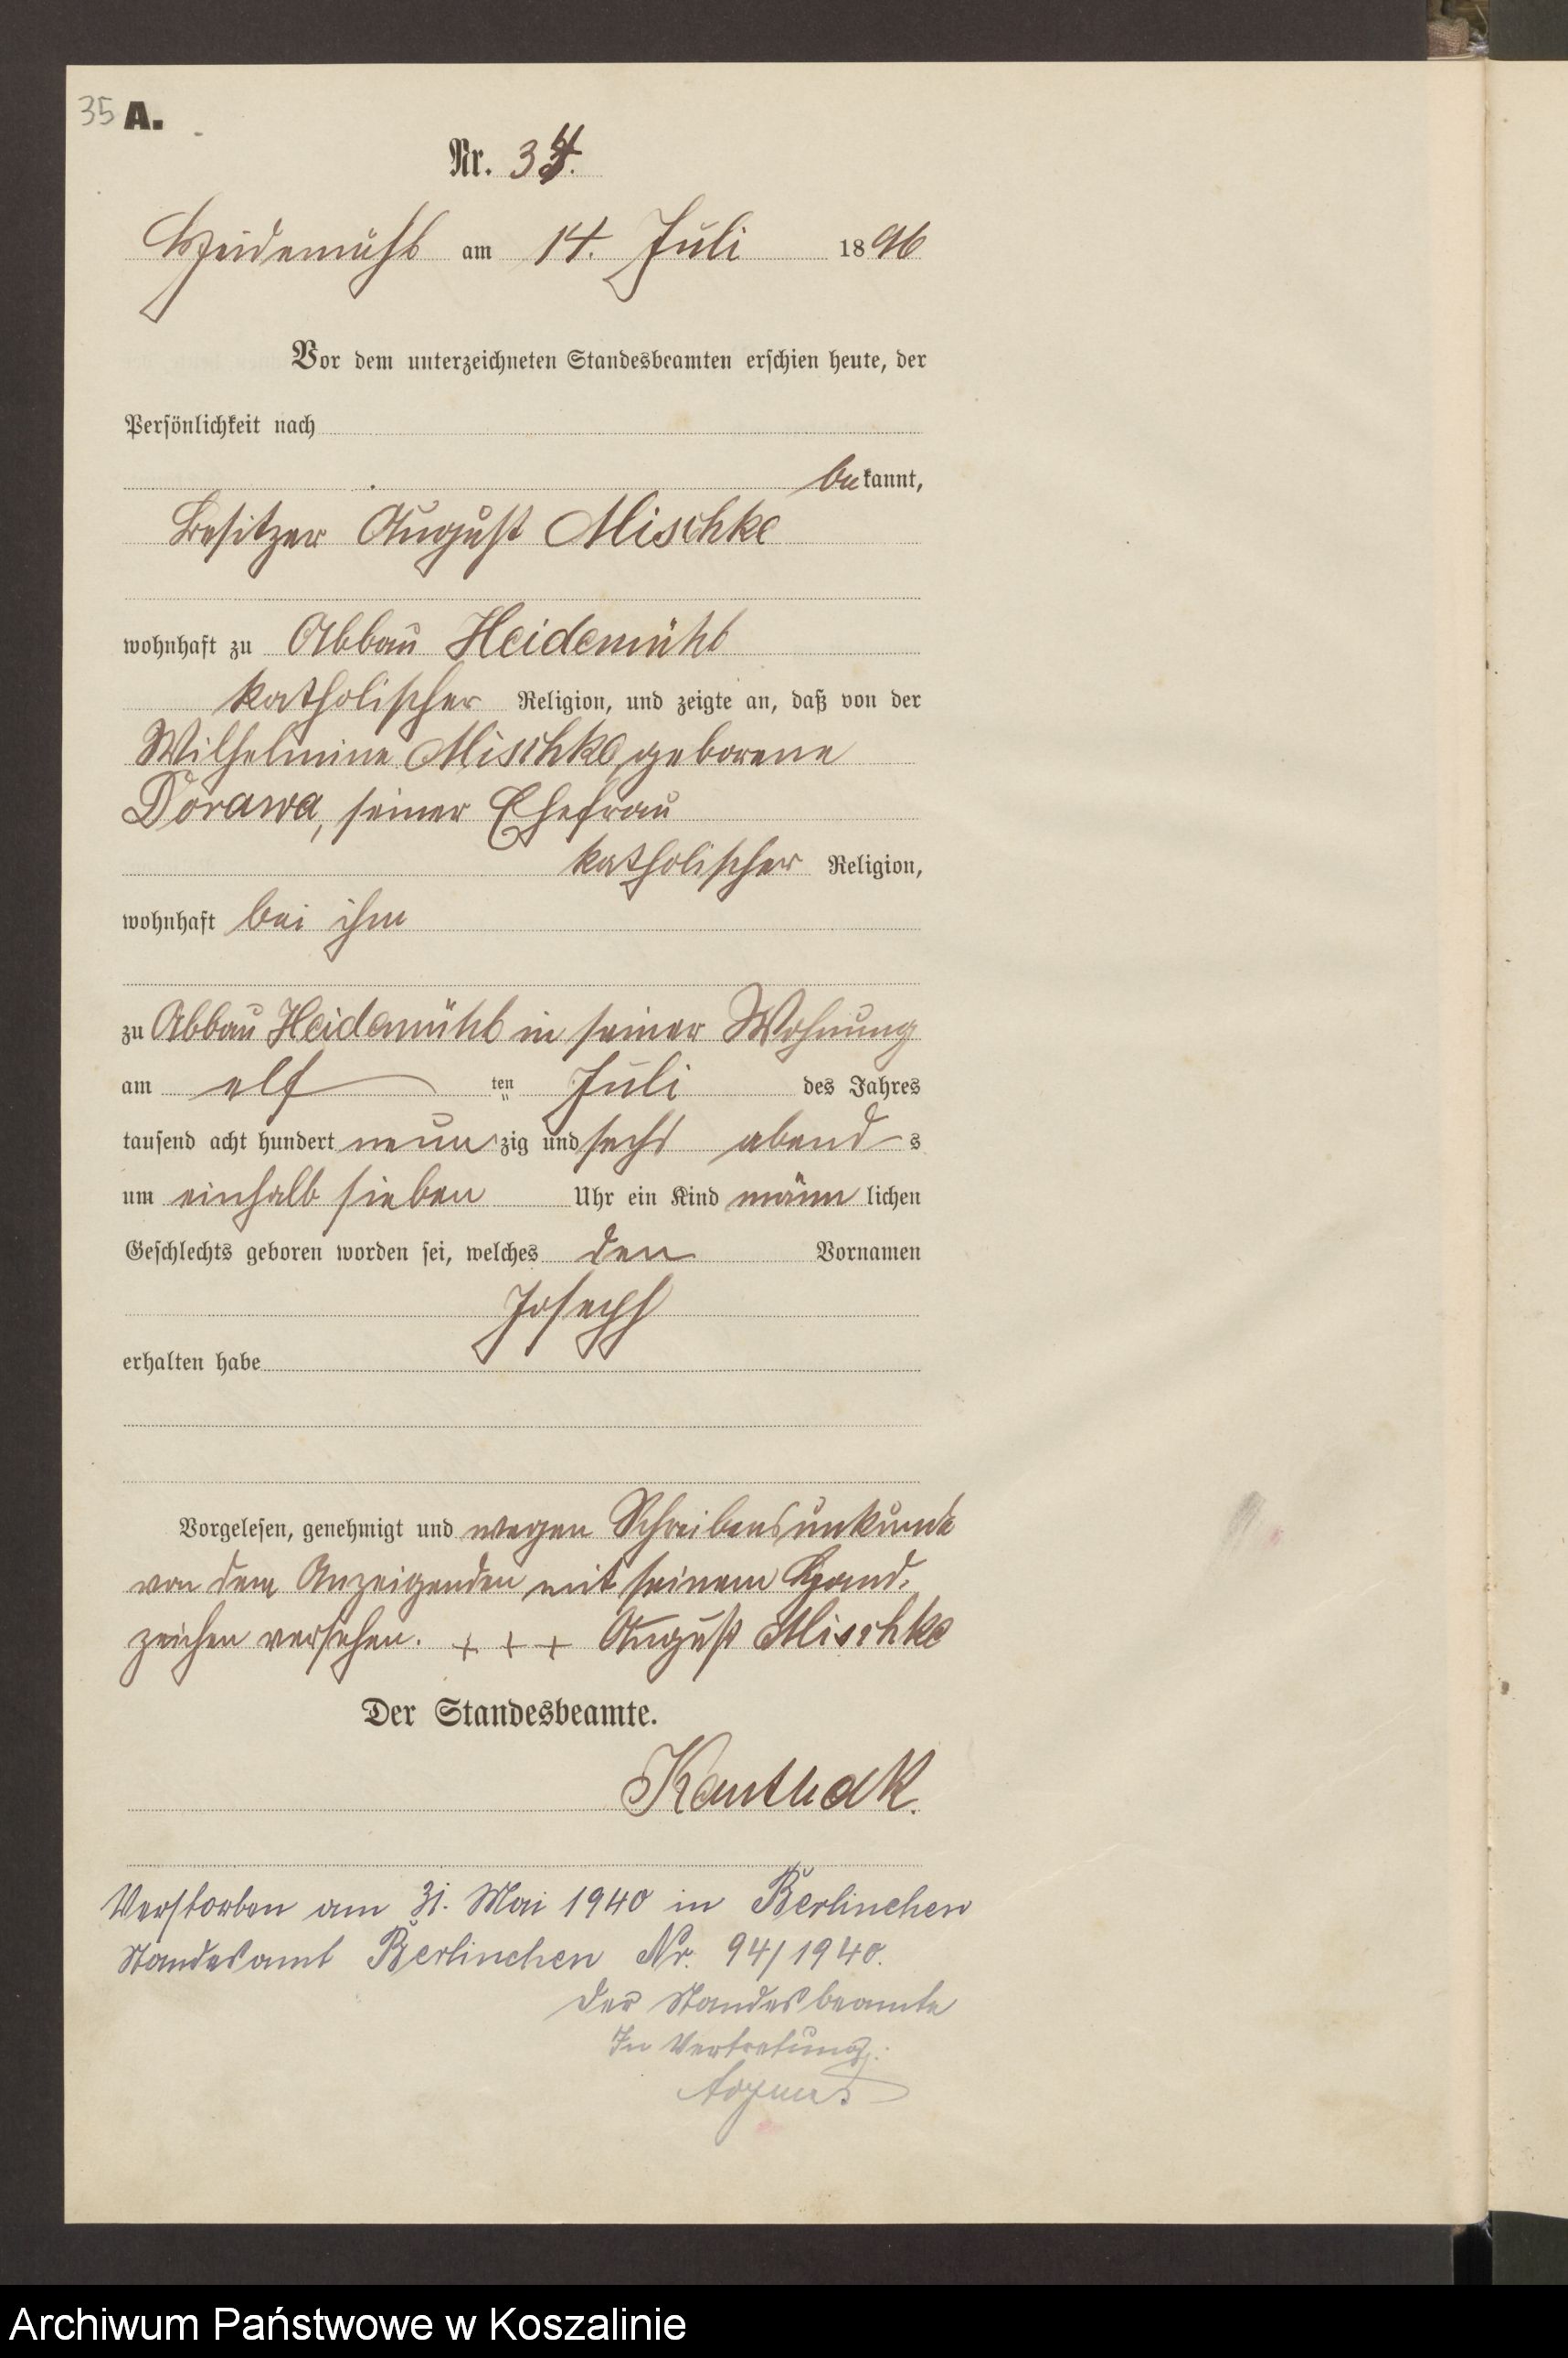 35 A.
Nr. 34.
Heidemühl am 14. Juli 1896
Vor dem unterzeichneten Standesbeamten erschien heute, der
Persönlichkeit nach
bekannt,
Besitzer August Mischke
wohnhaft zu Abbau Heidemühl
katholischer Religion, und zeigte an, daß von der
Wilhelmine Mischke, geborene
Dorawa, seiner Ehefrau
katholischer Religion,
wohnhaft bei ihm
zu Abbau Heidemühl in seiner Wohnung
am elf ten Juli des Jahres
tausend acht hundert neunzig und sechs abends
um einhalb sieben Uhr ein Kind männlichen
Geschlechts geboren worden sei, welches den Vornamen
Joseph
erhalten habe
Vorgelesen, genehmigt und wegen Schreibensunkunde
von dem Anzeigenden mit seinem Hand-
zeichen versehen. + + + August Mischke
Der Standesbeamte.
Kanthak.
Verstorben am 31. Mai 1940 in Berlinchen
Standesamt Berlinchen Nr. 94/1940.
Der Standesbeamte
In Vertretung:
Archiwum Państwowe w Koszalinie